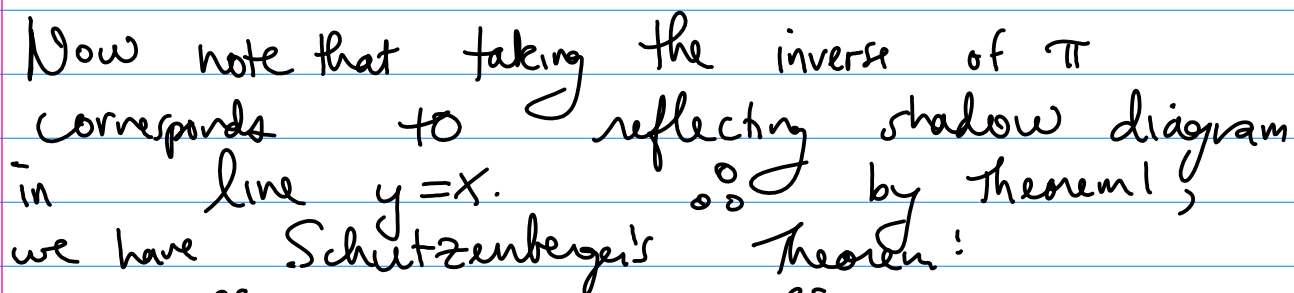 Now note that taking the inverse of π
corresponds to reflecting shadow diagram
in line y=x. ∴ by Theorem 1,
we have Schutzenberger's Theorem: